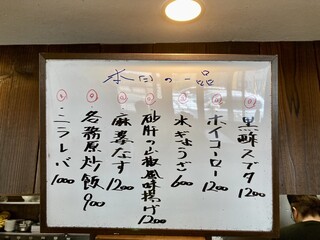 本日の一品
黒酢スブタ 1200
ホイコーロー 1200
水ぎょうざ 600
砂肝の山椒風味揚げ 1200
麻婆なす 1200
各務原炒飯 900
ニラレバ 1000